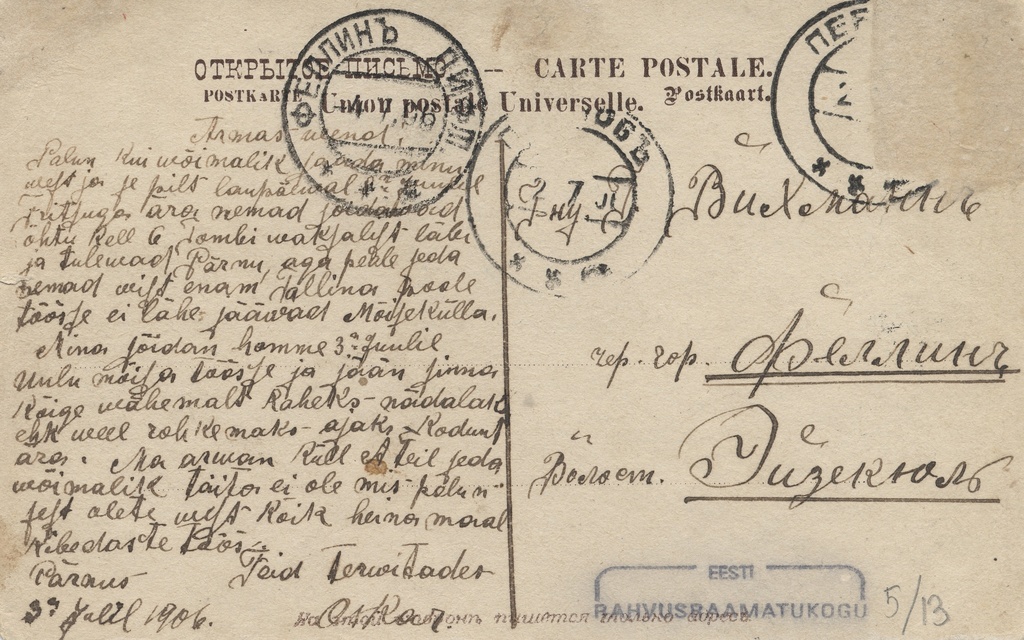 ОТКРЫТОЕ ПИСЬМО — CARTE POSTALE.
POSTKARTE Union postale Universelle. Postkaart.
ФЕЛЛИНЪ ЛИФЛ
ПЕР
7
Armas wend!
Palun kui wõimalik saada minu
west ja se pilt laupäiwal juulil
ära nemad sõidawad
õhtu kell 6 waksalist läbi
ja tulewad Pärnu, aga peale seda
nemad wist enam Tallina poole
töösse ei lähe jääwad Mõisekülla.
Mina sõidan homme 3. Juulil
Uulu mõisa töösse ja jään sinna
Kõige wähemalt Kaheks nädalaks
ehk weel rohkemaks ajaks Kodunt
ära. Ma arwan Küll et teil seda
wõimalik täita ei ole mis palun
sest olete wist Kõik heinamaal
Kibedaste töös
Pärnus Teid Terwitades
3. Juulil 1906. Oskar.
Вихманнъ
чер. гор. Феллинъ
Волост. Эйзекюль
на этой сторонѣ пишется только адресъ.
EESTI
RAHVUSRAAMATUKOGU
5/13